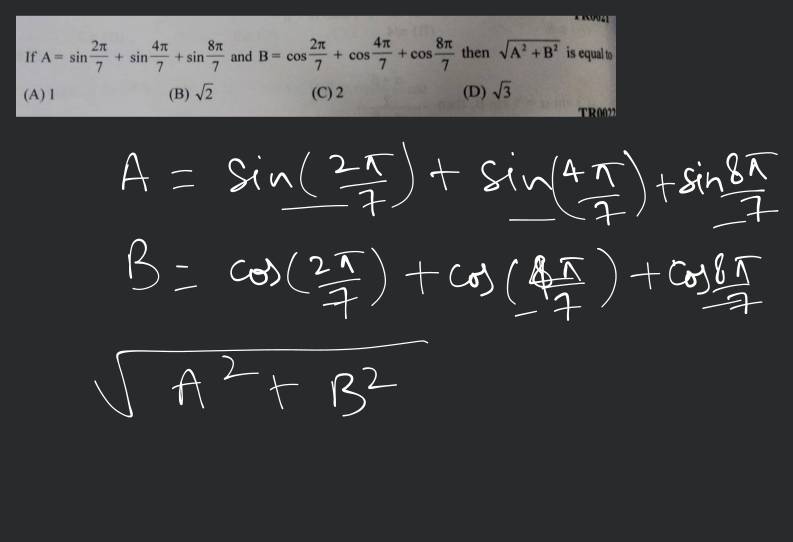 TR0021
If A = sin 2π/7 + sin 4π/7 + sin 8π/7 and B = cos 2π/7 + cos 4π/7 + cos 8π/7 then √(A² + B²) is equal to
(A) 1 (B) √2 (C) 2 (D) √3
TR0022
A = sin(2π/7) + sin(4π/7) + sin 8π/7
B = cos(2π/7) + cos(4π/7) + cos 8π/7
√(A² + B²)